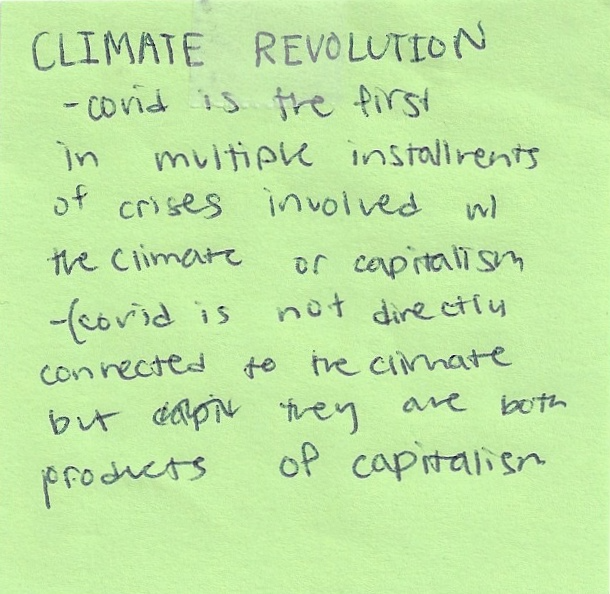 CLIMATE REVOLUTION
-covid is the first
in multiple installments
of crises involved w/
the climate or capitalism
-(covid is not directly
connected to the climate
but they are both
products of capitalism